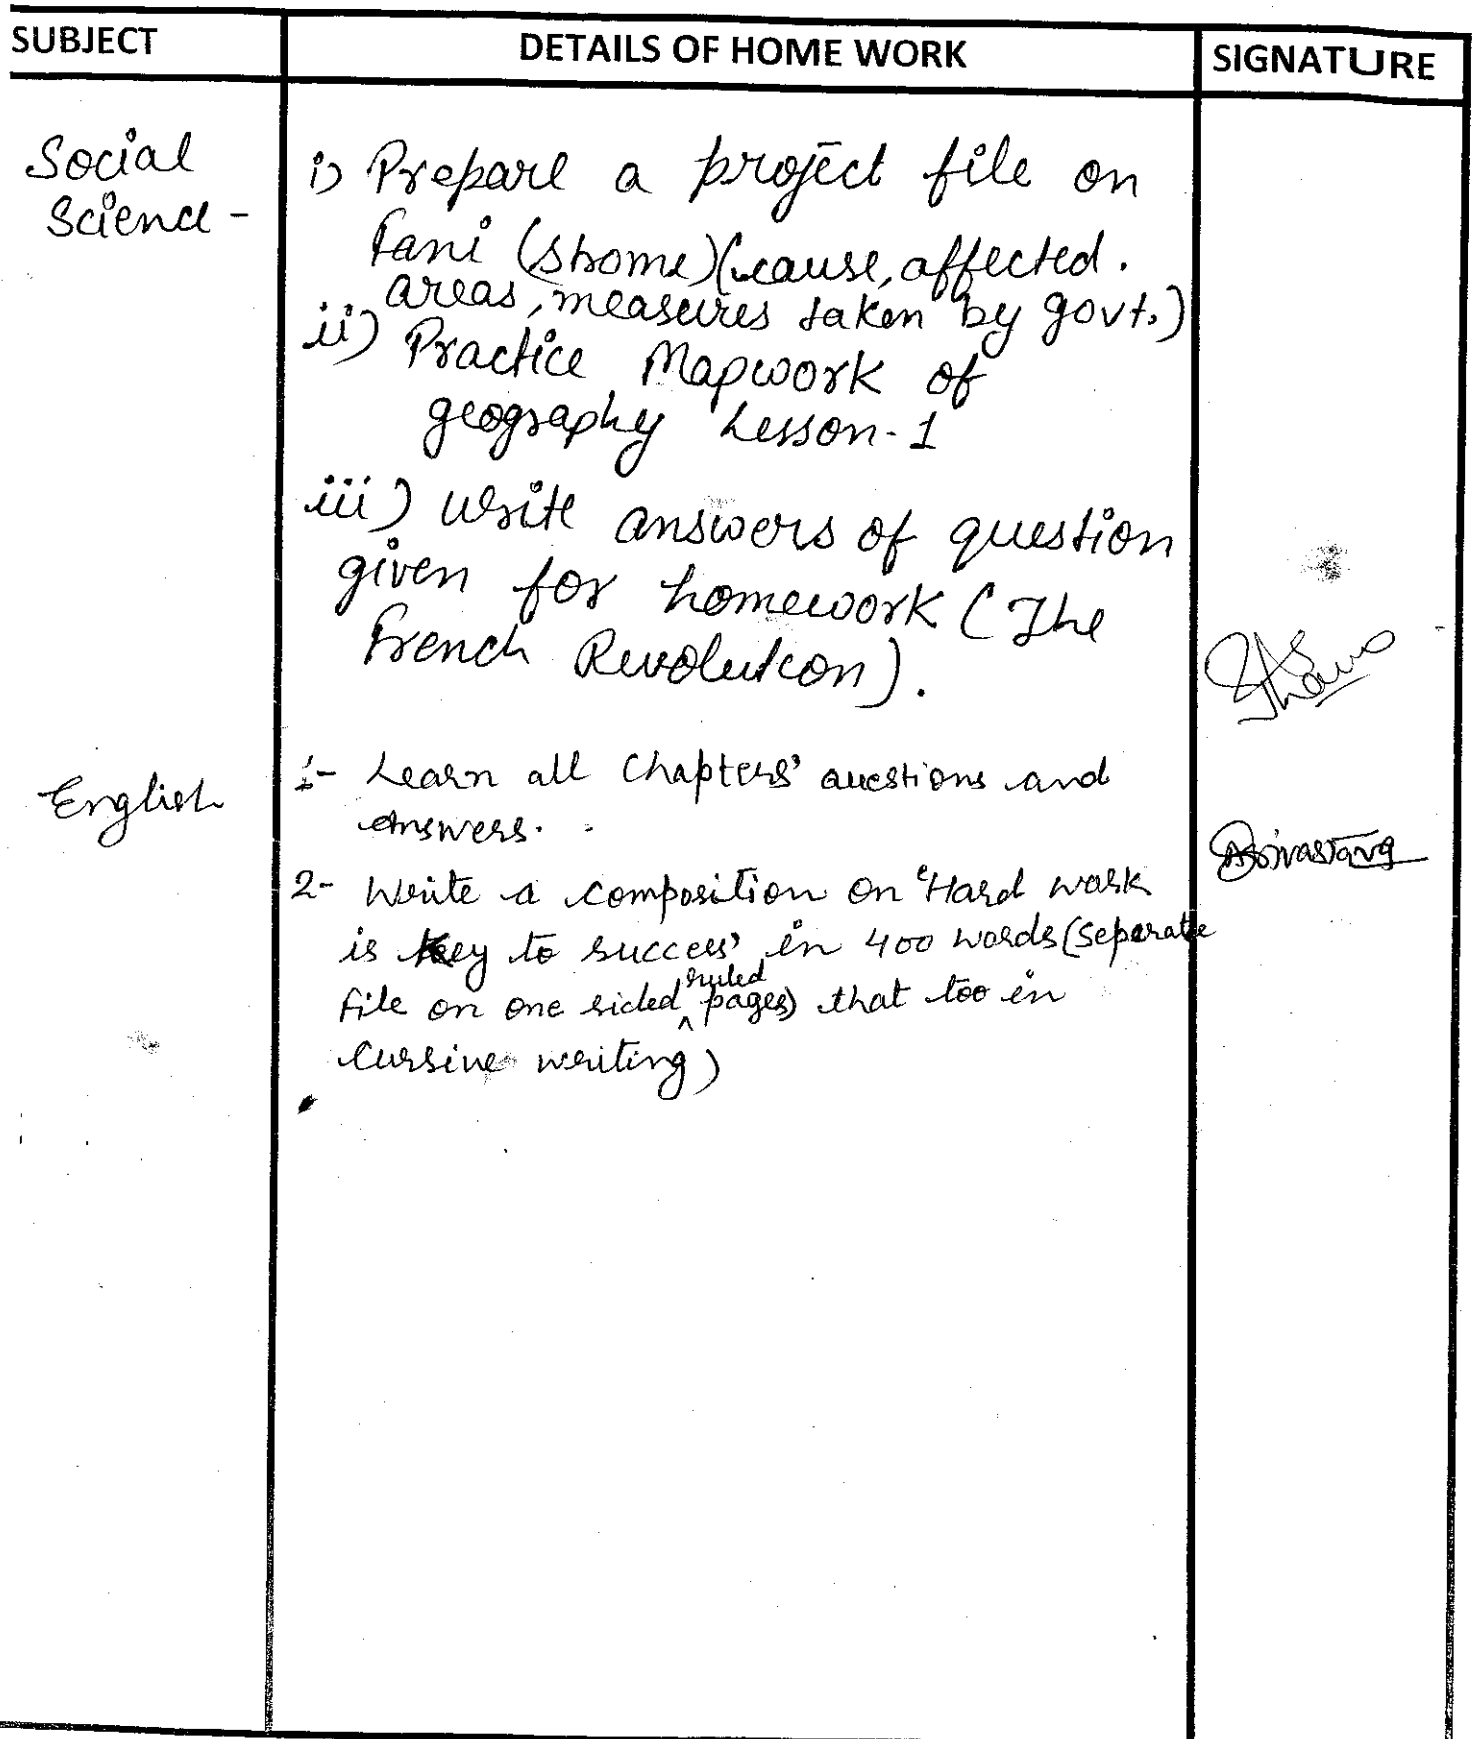 SUBJECT DETAILS OF HOME WORK SIGNATURE
Social
Science -
i) Prepare a project file on
Fani (strome) (cause, affected.
areas, measures taken by govt.)
ii) Practice Mapwork of
geography Lesson-1
iii) Write answers of question
given for homework (The
French Revolution).
English
1- Learn all Chapters' questions and
answers.
2- Write a composition on 'Hard work
is key to success' in 400 words (separate
file on one sided ruled pages) that too in
cursive writing)